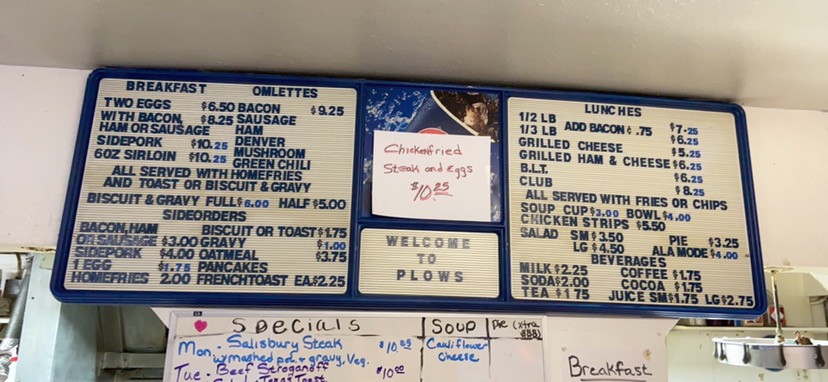 BREAKFAST OMLETTES
TWO EGGS $6.50 BACON $9.25
WITH BACON, $8.25 SAUSAGE
HAM OR SAUSAGE HAM
SIDEPORK $10.25 DENVER
6OZ SIRLOIN $10.25 MUSHROOM
GREEN CHILI
ALL SERVED WITH HOMEFRIES
AND TOAST OR BISCUIT & GRAVY
BISCUIT & GRAVY FULL $6.00 HALF $5.00
SIDEORDERS
BACON, HAM BISCUIT OR TOAST $1.75
OR SAUSAGE $3.00 GRAVY $1.00
SIDEPORK $4.00 OATMEAL $3.75
1 EGG $1.75 PANCAKES
HOMEFRIES 2.00 FRENCHTOAST EA.$2.25
Chickenfried
Steak and Eggs
$10.25
WELCOME
TO
PLOWS
LUNCHES
1/2 LB $7.25
1/3 LB ADD BACON ¢ .75 $6.25
GRILLED CHEESE $5.25
GRILLED HAM & CHEESE $6.25
B.L.T. $6.25
CLUB $8.25
ALL SERVED WITH FRIES OR CHIPS
SOUP CUP $3.00 BOWL $4.00
CHICKEN STRIPS $5.50
SALAD SM $3.50 PIE $3.25
LG $4.50 ALA MODE $4.00
BEVERAGES
MILK $2.25 COFFEE $1.75
SODA $2.00 COCOA $1.75
TEA $1.75 JUICE SM $1.75 LG $2.75
Specials Soup Pie
Mon. - Salisbury Steak $10.25 Cauliflower
w/mashed pot. + gravy, Veg. Cheese
Tue - Beef Stroganoff $10.00
Texas Toast
Breakfast